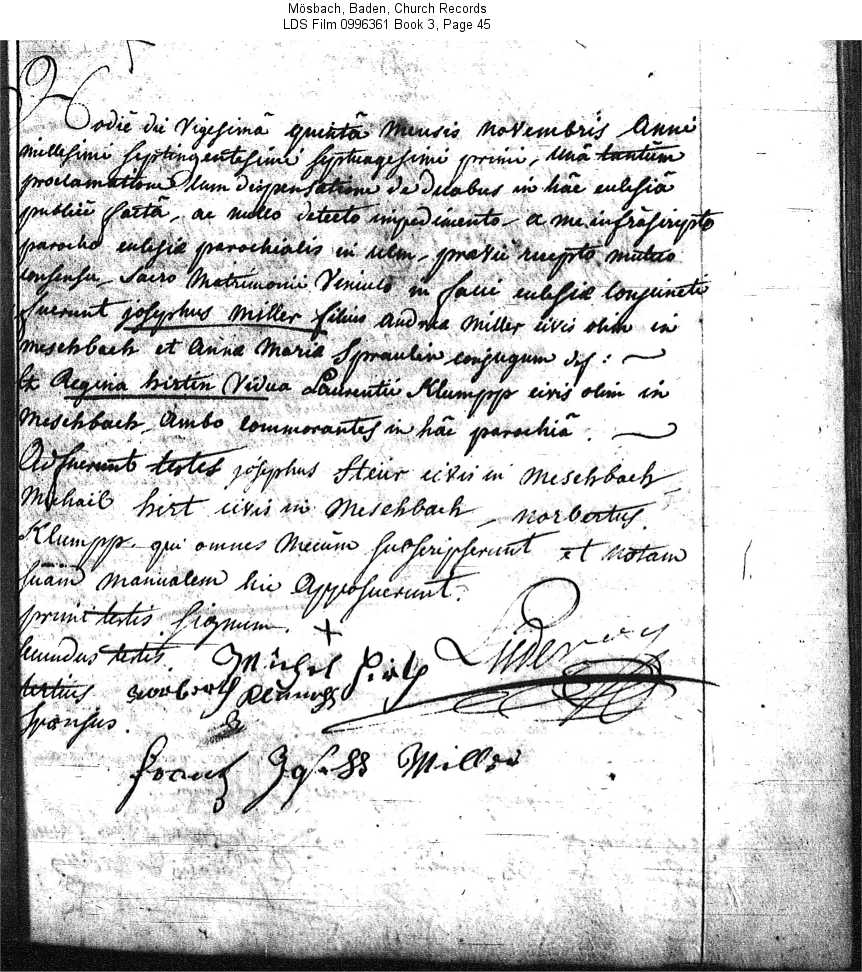 Mösbach, Baden, Church Records
LDS Film 0996361 Book 3, Page 45
Hodie die Vigesimâ quintâ mensis novembris Anni
millesimi septingentesimi septuagesimi primi, unâ tantùm
proclamatione cum dispensatione de duabus in hâc eclesiâ
publicè factâ, ac nullo detecto impedimento, a me infrascripto
parocho eclesiæ parochialis in ulm, præviè recepto mutuo
consensu, sacro Matrimonii Vinculo in facie eclesiæ Conjuncti
fuerunt josephus Miller filius Andreæ Miller civis olim in
Meschbach et Annæ Mariæ Spraulin conjugum def:
et Regina hirtin Vidua Laurentii Klumpp civis olim in
Meschbach, Ambo commorantes in hâc parochiâ.
Adfuerunt testes josephus Steur civis in Meschbach
Michael hirt civis in Meschbach, norbertus
Klumpp. qui omnes Mecùm subscripserunt et notam
suam manualem hic Apposuerunt.
primi testis signum. +
secundus testis. Michel Hirt
tertius norbert Klumpp
sponsus.
Frantz Joseff Miller